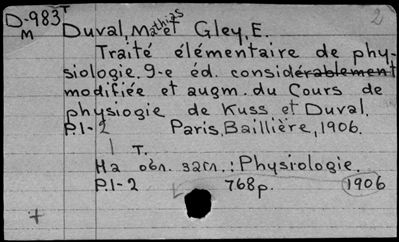 D-983 T
M
2
Duval, Mathias et Gley, E.
Traité élémentaire de phy-
siologie. 9-e éd. considérablement
modifiée et augm. du Cours de
physiogie de Kuss et Duval.
P.1-2 Paris, Baillière, 1906.
1 T.
На обл. загл.: Physiologie.
P.1-2 768p. 1906
+